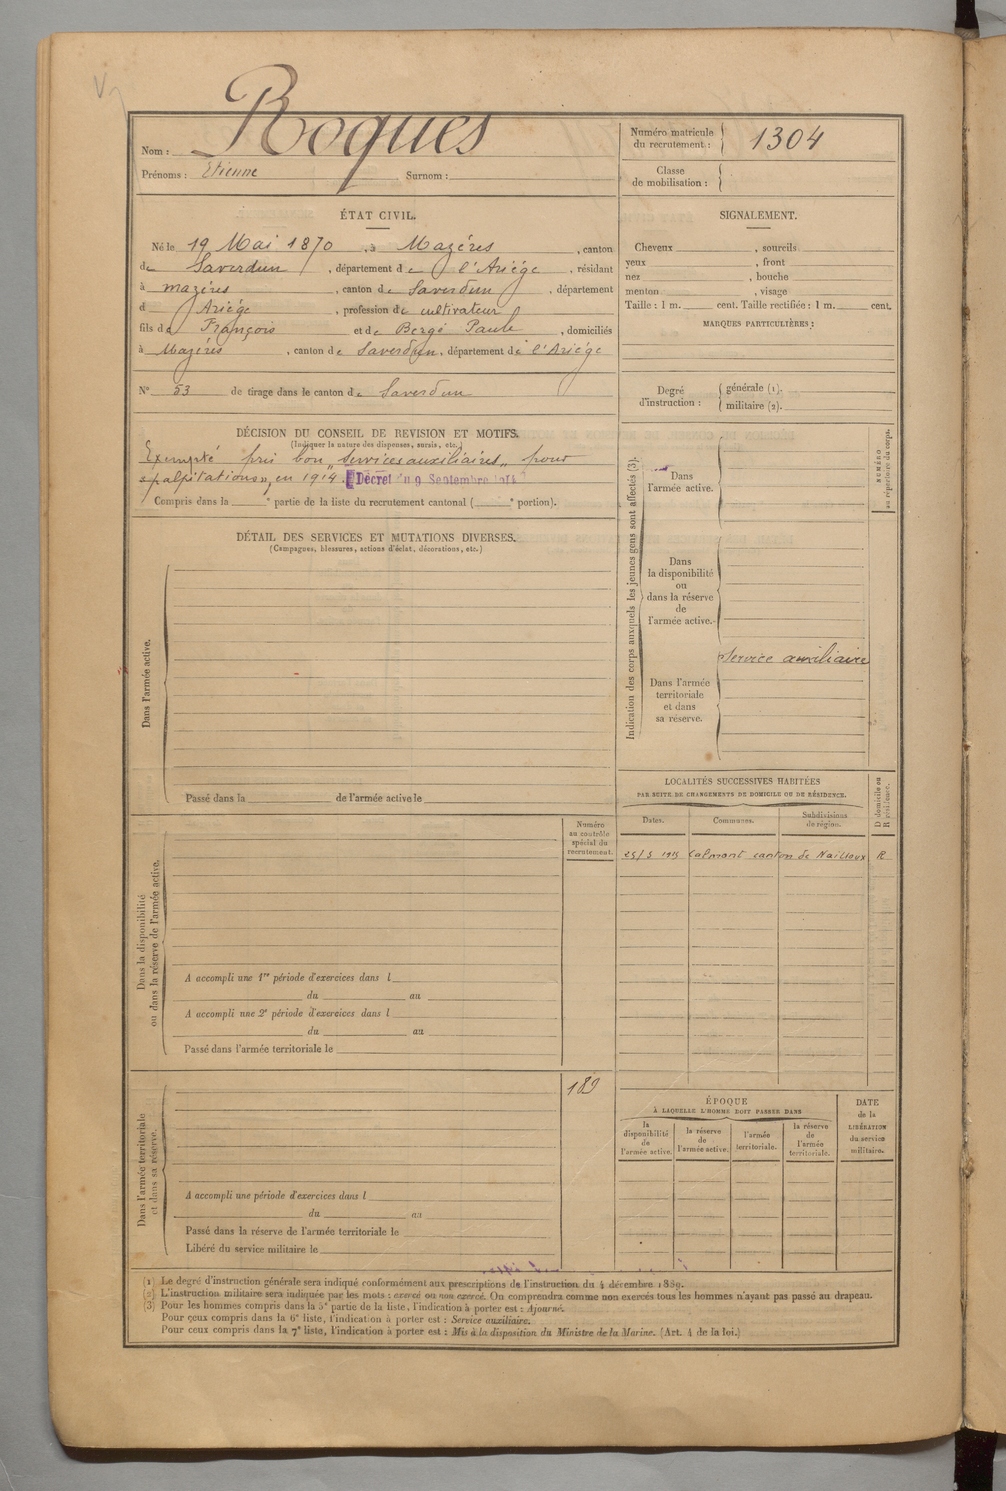 Roques
Nom :
Prénoms : Etienne Surnom :
Numéro matricule
du recrutement : 1304
Classe
de mobilisation :
ÉTAT CIVIL.
Né le 19 Mai 1870, à Mazéres, canton
de Saverdun, département de l'Ariége, résidant
à mazéres, canton de Saverdun, département
d Ariége, profession de cultivateur
fils de François et de Bergé Paule, domiciliés
à Mazéres, canton de Saverdun, département de l'Ariége
N° 53 de tirage dans le canton de Saverdun
SIGNALEMENT.
Cheveux , sourcils
yeux , front
nez , bouche
menton , visage
Taille : 1 m. cent. Taille rectifiée : 1 m. cent.
MARQUES PARTICULIÈRES :
Degré
d'instruction :
générale (1).
militaire (2).
DÉCISION DU CONSEIL DE REVISION ET MOTIFS.
(Indiquer la nature des dispenses, sursis, etc.)
Exempté pris bon "services auxiliaires" pour
"palpitations" en 1914. Décret du 9 Septembre 1914
Compris dans la e partie de la liste du recrutement cantonal ( e portion).
DÉTAIL DES SERVICES ET MUTATIONS DIVERSES.
(Campagnes, blessures, actions d'éclat, décorations, etc.)
Dans l'armée active.
Passé dans la de l'armée active le
Indication des corps auxquels les jeunes gens sont affectés (3).
Dans
l'armée active.
Dans
la disponibilité
ou
dans la réserve
de
l'armée active.
service auxiliaire
Dans l'armée
territoriale
et dans
sa réserve.
NUMÉRO
au répertoire du corps.
LOCALITÉS SUCCESSIVES HABITÉES
PAR SUITE DE CHANGEMENTS DE DOMICILE OU DE RÉSIDENCE.
D domicile ou
R résidence.
Dates. Communes. Subdivisions
de région.
25/3 1915 Calmont canton de Nailloux R
Dans la disponibilité
ou dans la réserve de l'armée active.
Numéro
au contrôle
spécial du
recrutement.
A accompli une 1re période d'exercices dans l
du au
A accompli une 2e période d'exercices dans l
du au
Passé dans l'armée territoriale le
Dans l'armée territoriale
et dans sa réserve.
A accompli une période d'exercices dans l
du au
Passé dans la réserve de l'armée territoriale le
Libéré du service militaire le
ÉPOQUE
À LAQUELLE L'HOMME DOIT PASSER DANS
la
disponibilité
de
l'armée active.
la réserve
de
l'armée active.
l'armée
territoriale.
la réserve
de
l'armée
territoriale.
DATE
de la
LIBÉRATION
du service
militaire.
(1) Le degré d'instruction générale sera indiqué conformément aux prescriptions de l'instruction du 4 décembre 1889.
(2) L'instruction militaire sera indiquée par les mots : exercé ou non exercé. On comprendra comme non exercés tous les hommes n'ayant pas passé au drapeau.
(3) Pour les hommes compris dans la 5e partie de la liste, l'indication à porter est : Ajourné.
Pour ceux compris dans la 6e liste, l'indication à porter est : Service auxiliaire.
Pour ceux compris dans la 7e liste, l'indication à porter est : Mis à la disposition du Ministre de la Marine. [Art. 4 de la loi.]